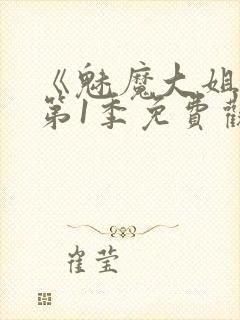 《魅魔大姐
第1季免費觀
崔莹